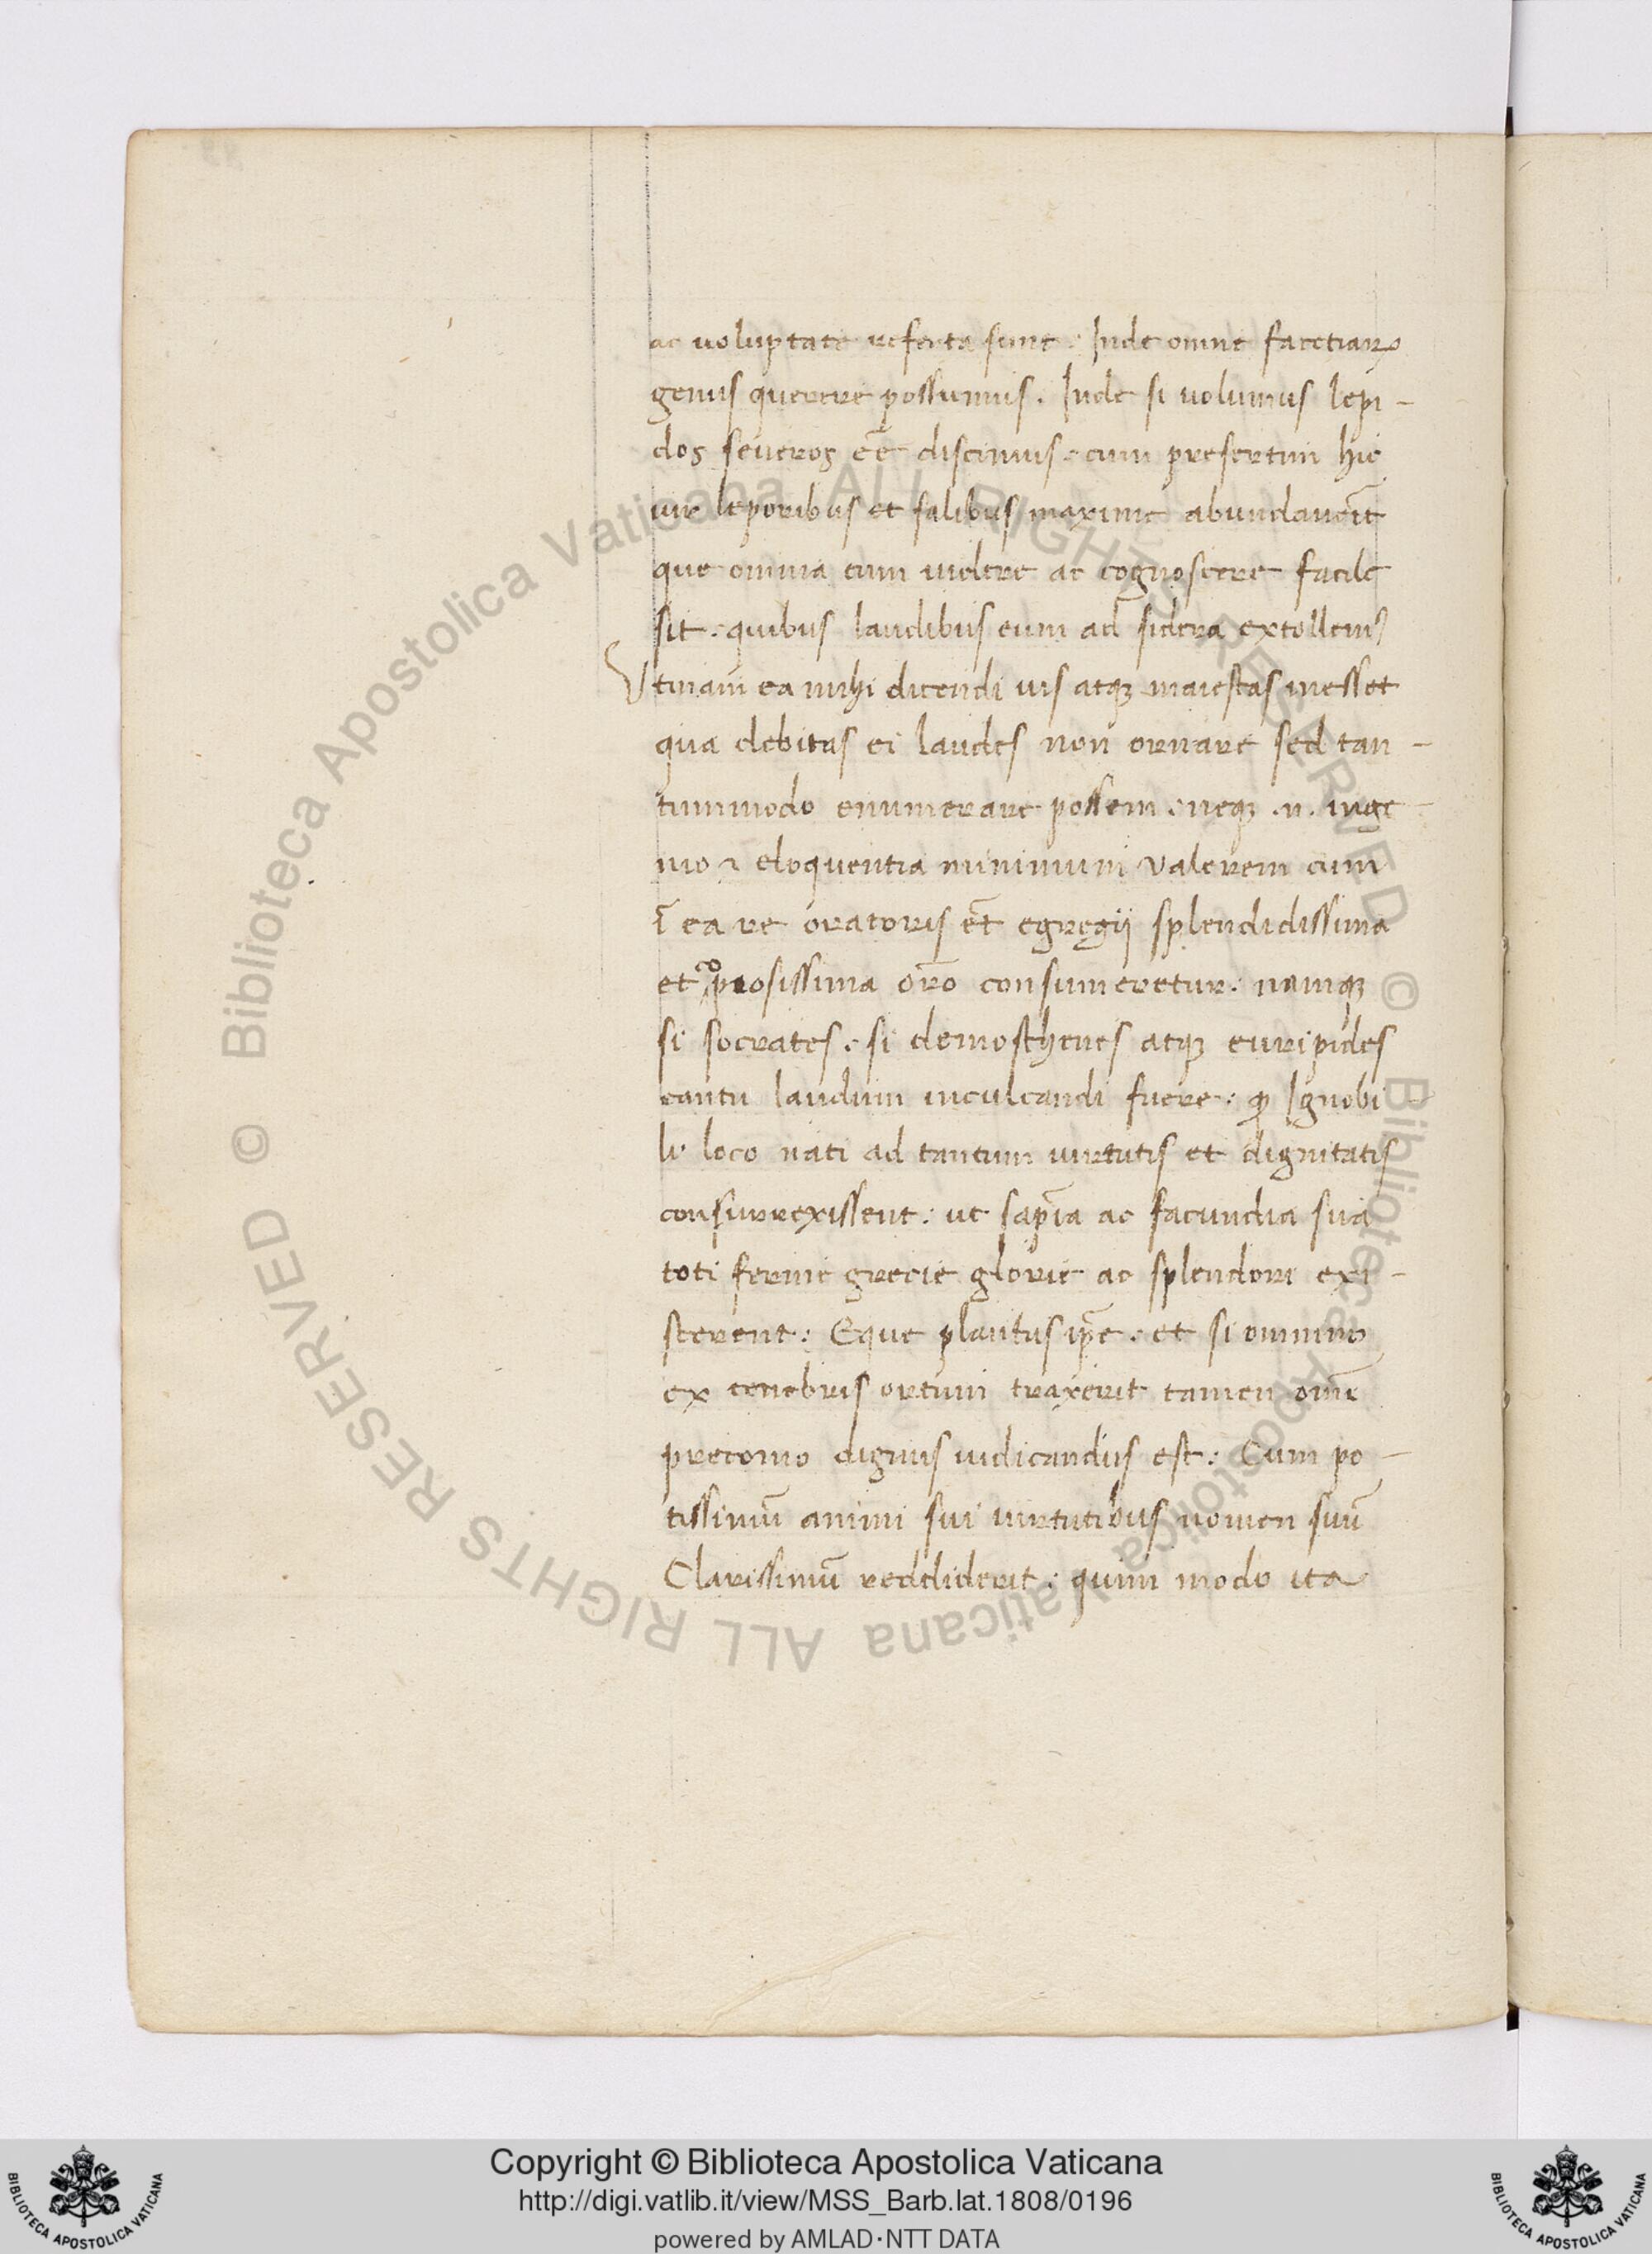 ac uoluptate referta sunt: Inde omne facetiaꝝ
genus querere possumus. Inde si uolumus lepi-
dos seueros eē discimus: cum presertim hic
uir leporibus et salibus maxime abundauerit
que omnia cum uidere ac cognoscere facile
sit: quibus laudibus eum ad sidera extollemus
Vtinam ea mihi dicendi uis atqꝫ maiestas inesset
qua debitas ei laudes non ornare sed tan-
tummodo enumerare possem: neqꝫ .n. inge-
nio ⁊ eloquentia minimum valerem cum
ī ea re oratoris et̄ egregij splendidissima
et copiosissima or̄o consumeretur: namqꝫ
si socrates: si demosthenes atqꝫ euripides
cantu laudum inculcandi fuere: ꝙ Ignobi-
li loco nati ad tantum uirtutis et dignitatis
consurrexissent: ut sapīa ac facundia sua
toti ferme grecie glorie ac splendori exi-
sterent: Eque plautus ip̄e: et si omnino
ex tenebris ortum traxerit tamen omī
preconio dignus iudicandus est: Cum po-
tissimū animi sui uirtutibus nomen suū
Clarissimū reddiderit: quini modo ita
© Biblioteca Apostolica Vaticana ALL RIGHTS RESERVED © Biblioteca Apostolica Vaticana ALL RIGHTS RESERVED
Copyright © Biblioteca Apostolica Vaticana
http://digi.vatlib.it/view/MSS_Barb.lat.1808/0196
powered by AMLAD·NTT DATA
BIBLIOTECA APOSTOLICA VATICANA
BIBLIOTECA APOSTOLICA VATICANA